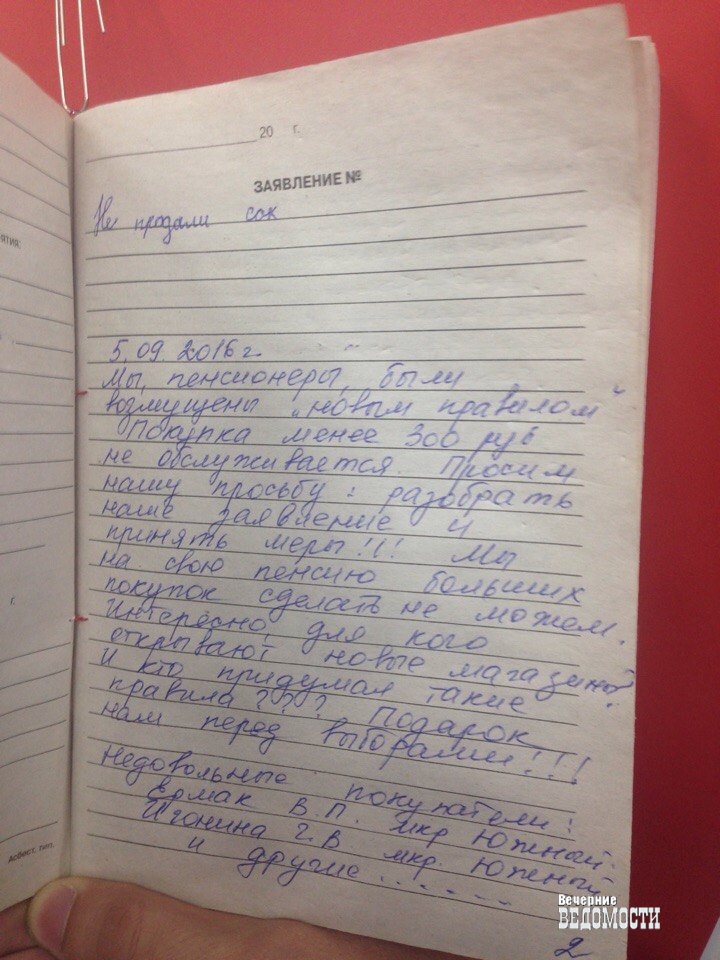 20 г.
ЗАЯВЛЕНИЕ №
Не продали сок
5.09.2016 г.
Мы, пенсионеры, были
возмущены „новым правилом"
Покупка менее 300 руб
не обслуживается. Просим
нашу просьбу: разобрать
наше заявление и
принять меры!!! Мы
на свою пенсию больших
покупок сделать не можем.
Интересно, для кого
открывают новые магазины?
И кто придумал такие
правила??? Подарок
нам перед выборами!!!
Недовольные покупатели:
Ермак В.П. мкр Южный
Игонина Г.В мкр. Южный
и другие ......
2
ятия:
г.
Асбест, тип.
Вечерние
ВЕДОМОСТИ